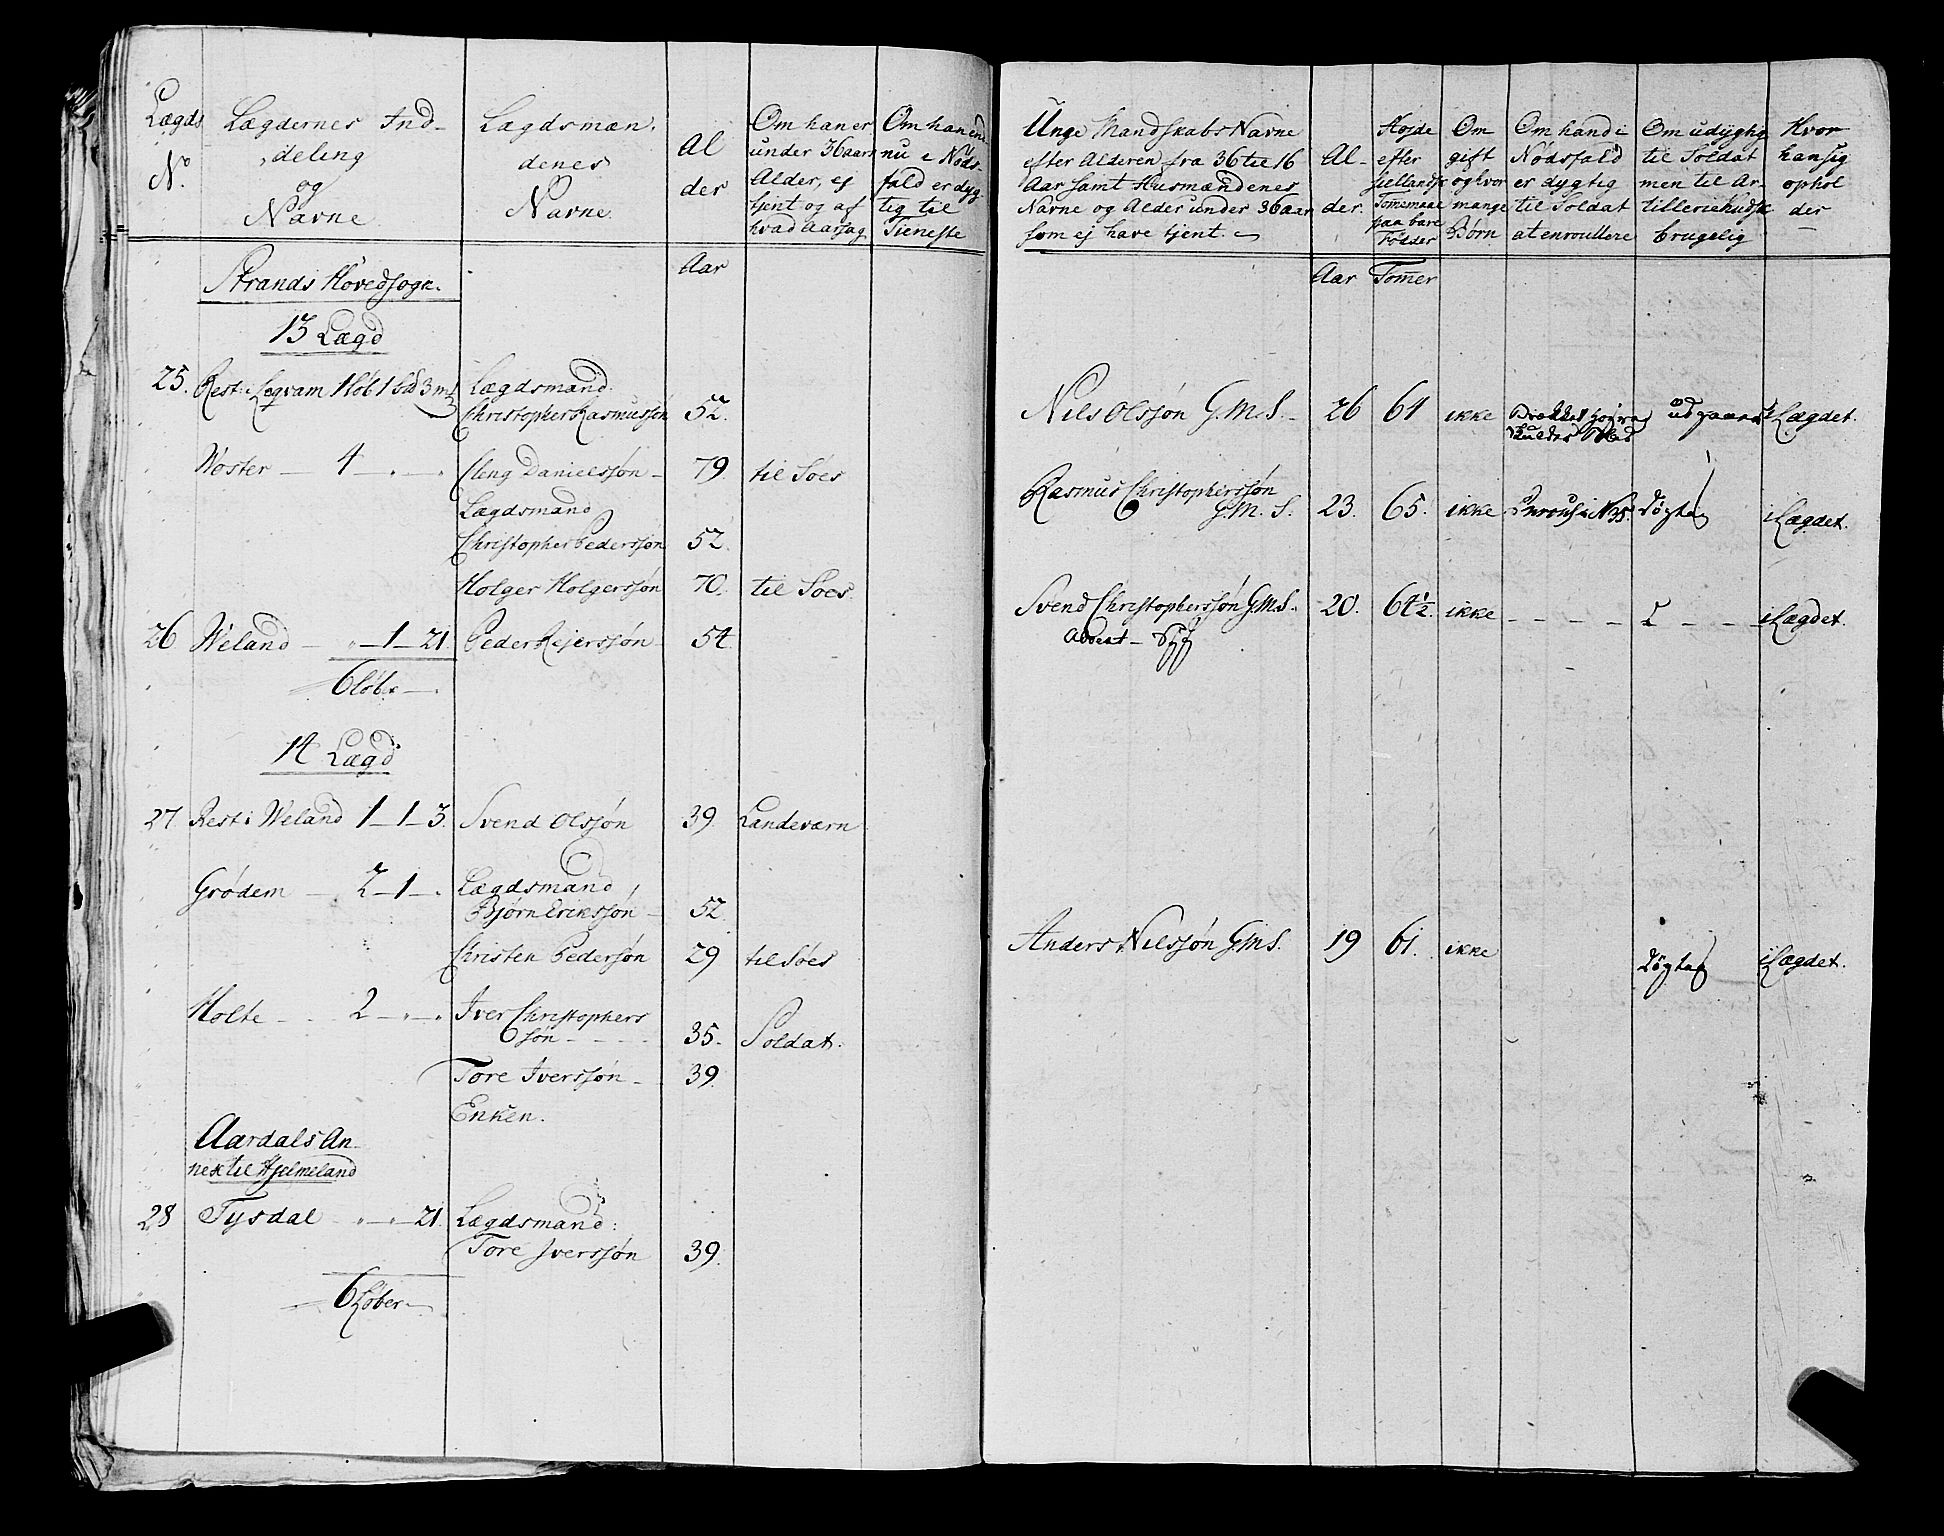 Lægds
N.
Lægdernes Ind-
deling
og
Navne
Lægdsmæn,
denes
Navne.
Al
der
Om han er
under 36 aars
Alder, ej
tjent og af
hvad Aarsag
Om han end
nu i Nøds-
fald er dyg
tig til
Tieneste
Aar
Strands Hovedsogn.
13 Lægd
25. Rest i Leqvam 1 Løb 1 3 Lægdsmand
Christopher Rasmussøn 52.
Woster — 4 — „ — „ Cleng Danielssøn — 79. til Søes
Lægdsmand
Christopher Pederssøn 52.
Holger Holgerssøn 70. til Søes.
26 Weland — „ — 1 — 21. Peder Rejerssøn — 54.
6 Løbe —
14 Lægd
27 Rest i Weland 1 — 1 — 3. Svend Olssøn 39. Landeværn
Grødem — 2 — 1 — „ Lægdsmand
Bjørn Erikssøn — 52.
Christen Pedersøn 29 til Søes
Holte - - - 2 — „ — „ Iver Christophers
søn - - - - 35. Soldat.
Tore Iverssøn — 39.
Enken.
Aardals An-
nex til Hjelmeland
28 Tysdal „ — „ — 21. Lægdsmand:
Tore Iverssøn 39.
6 Løber —
Unge Mandskabs Navne
efter Alderen fra 36 til 16
Aar samt Husmændenes
Navne og Alder under 36 aar
som ej have tjent.
Al-
der.
Højde
efter
siellandsk
Tommemaal
paa bare
Fødder
Om
gift
og hvor
mange
Børn
Om hand i
Nødsfald
er dygtig
til Soldat
at enroullere
Om udygtig
til Soldat
men til Ar-
tilleriekudsk
brugelig
Hvor
han sig
ophol
der
Aar Tommer
Nils Olssøn G.M.S. 26 64 ikke Brækket højre udgaaer i Lægdet.
Skulder Blad
Rasmus Christopherssøn
G.M.S. 23. 65. ikke Døgtig i Lægdet.
Svend Christopherssøn G.M.S. 20. 64½. ikke - - - - - - i Lægdet.
Anders Nilssøn G.M.S. 19 61. ikke Døgtig i Lægdet.